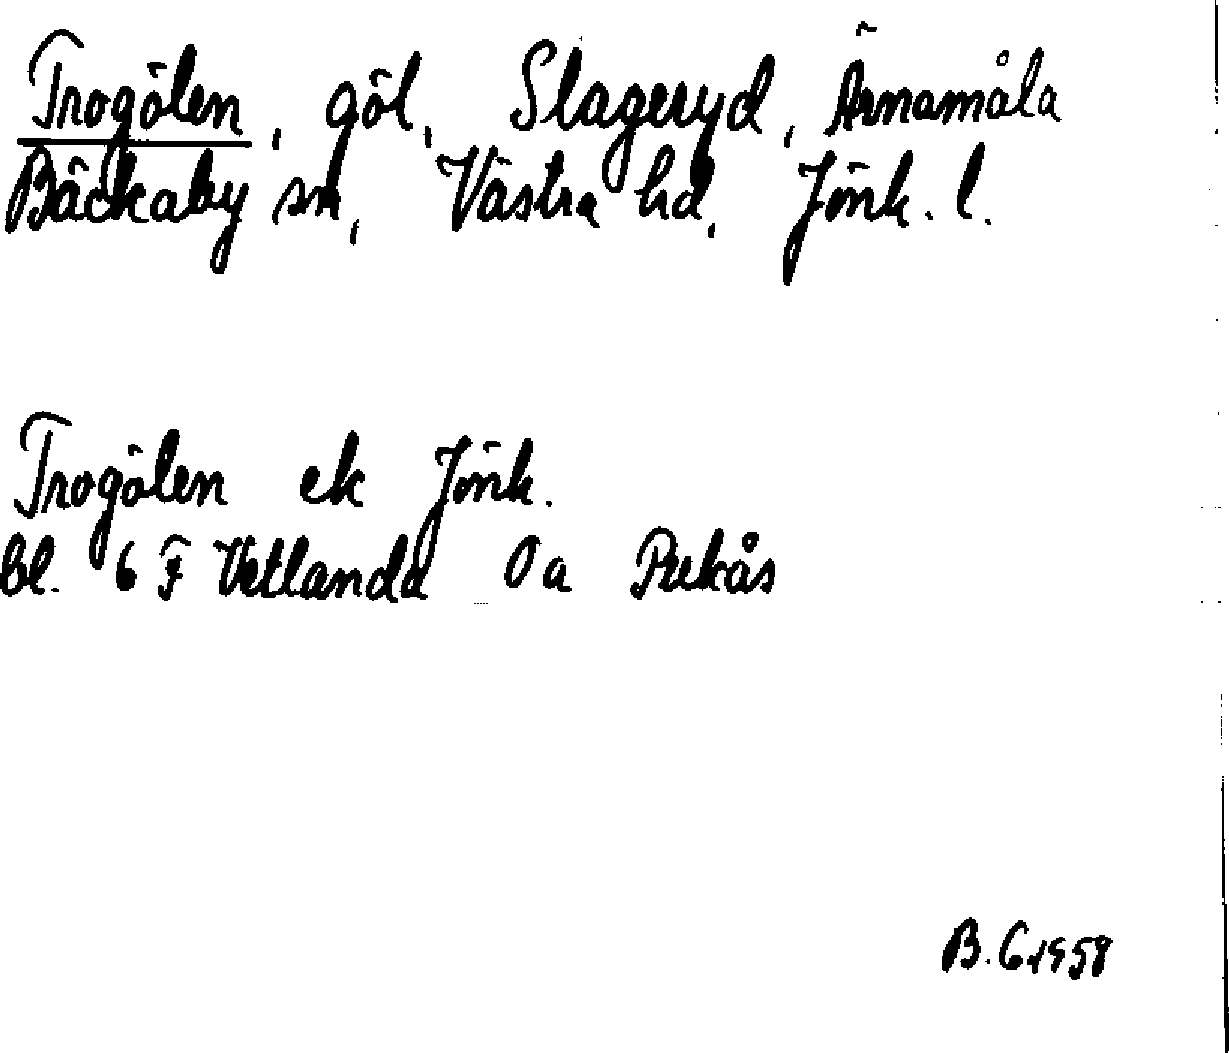 Trogölen, göl, Slageryd, Ärnamåla
Bäckaby sn, Västra hd, Jönk. l.
Trogölen ek Jönk.
bl. 6 F Vetlanda 0a Pukås
B. G. 1958